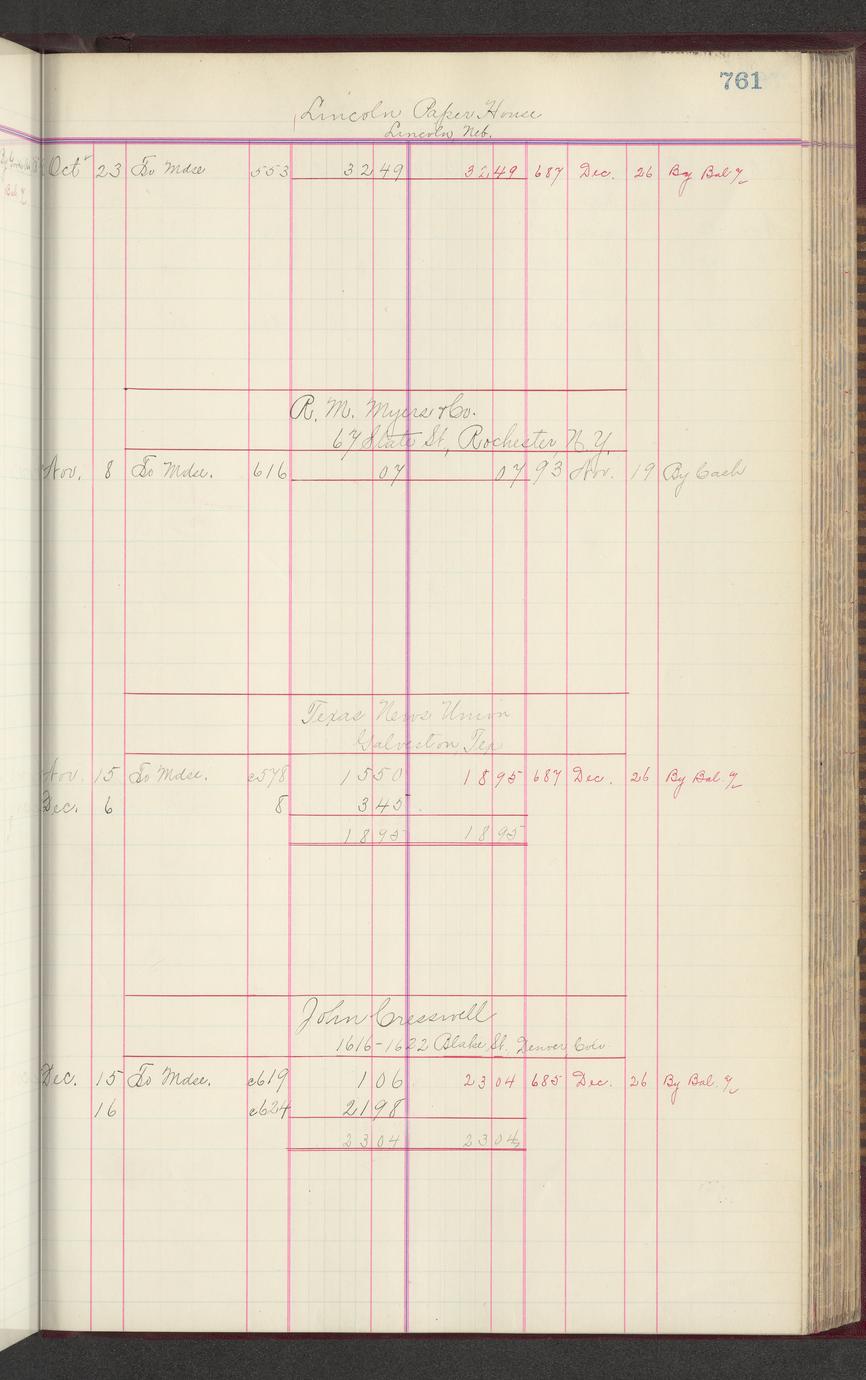 761
Lincoln Paper House
Lincoln, Neb.
Oct 23 To Mdse 553 32 49 32 49 687 Dec. 26 By Bal
R. M. Myers & Co.
67 State St, Rochester, N.Y.
Nov. 8 To Mdse. 616 07 07 93 Nov. 19 By Cash
Texas News Union
Galveston, Tex
Nov. 15 To Mdse. c578 15 50 18 95 687 Dec. 26 By Bal.
Dec. 6 8 3 45
18 95 18 95
John Cresswell
1616-1622 Blake St., Denver, Colo
Dec. 15 To Mdse. c619 1 06 23 04 685 Dec. 26 By Bal.
16 c624 21 98
23 04 23 04